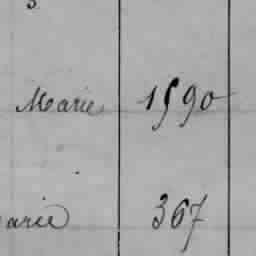 Marie 1590
arie 367